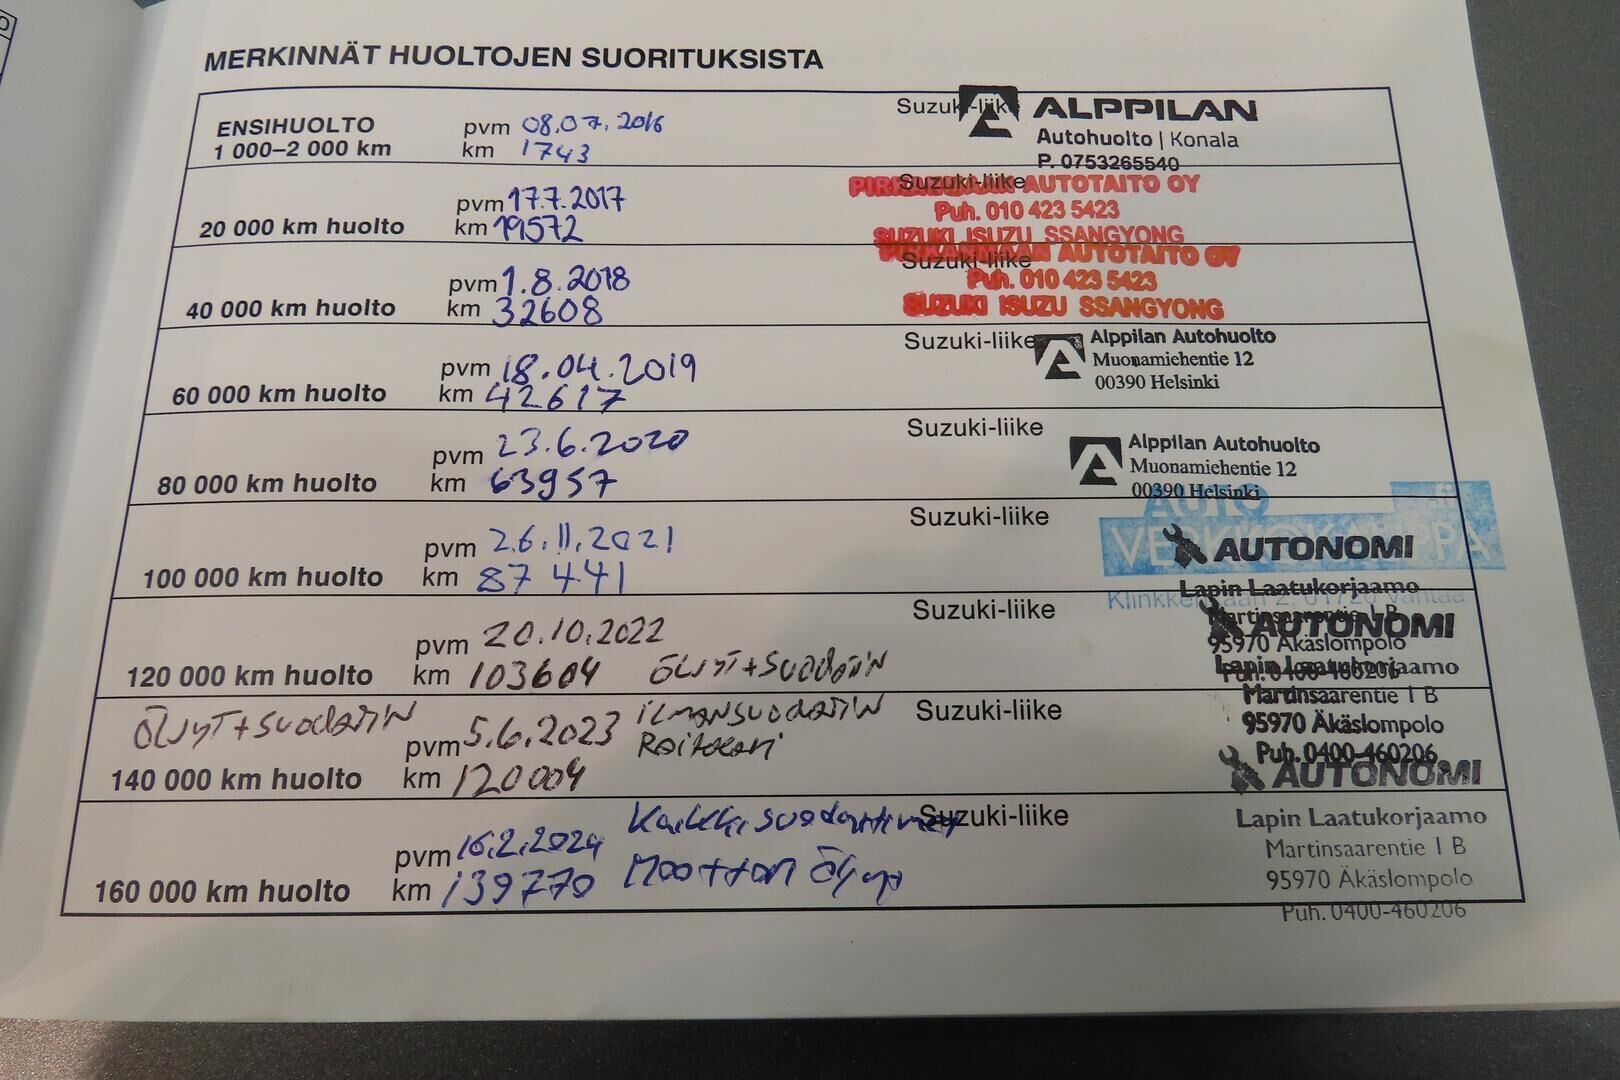 MERKINNÄT HUOLTOJEN SUORITUKSISTA
ENSIHUOLTO pvm 08.07.2016 Suzuki-liike ALPPILAN
1 000–2 000 km km 1743 Autohuolto | Konala
P. 0753265540
pvm 17.7.2017 Suzuki-liike AUTOTAITO OY
20 000 km huolto km 19572 Puh. 010 423 5423
SUZUKI ISUZU SSANGYONG
pvm 1.8.2018 Suzuki-liike PIRKANMAAN AUTOTAITO OY
40 000 km huolto km 32608 Puh. 010 423 5423
SUZUKI ISUZU SSANGYONG
pvm 18.04.2019 Suzuki-liike Alppilan Autohuolto
60 000 km huolto km 42617 Muonamiehentie 12
00390 Helsinki
pvm 23.6.2020 Suzuki-liike Alppilan Autohuolto
80 000 km huolto km 63957 Muonamiehentie 12
00390 Helsinki
AUTO .fi
pvm 26.11.2021 Suzuki-liike AUTONOMI
100 000 km huolto km 87 441 Lapin Laatukorjaamo
01720 Vantaa
Martinsaarentie 1 B
95970 Äkäslompolo
Puh. 0400-460206
pvm 20.10.2022 Suzuki-liike AUTONOMI
120 000 km huolto km 103604 ÖLJYT+SUODATIN Lapin Laatukorjaamo
Martinsaarentie 1 B
95970 Äkäslompolo
Puh. 0400-460206
ÖLJYT+SUODATIN pvm 5.6.2023 ILMANSUODATIN Suzuki-liike
140 000 km huolto km 120004 AUTONOMI
pvm 16.2.2024 Kaikki suodattimet Suzuki-liike Lapin Laatukorjaamo
160 000 km huolto km 139770 Moottori Öljyt Martinsaarentie 1 B
95970 Äkäslompolo
Puh. 0400-460206